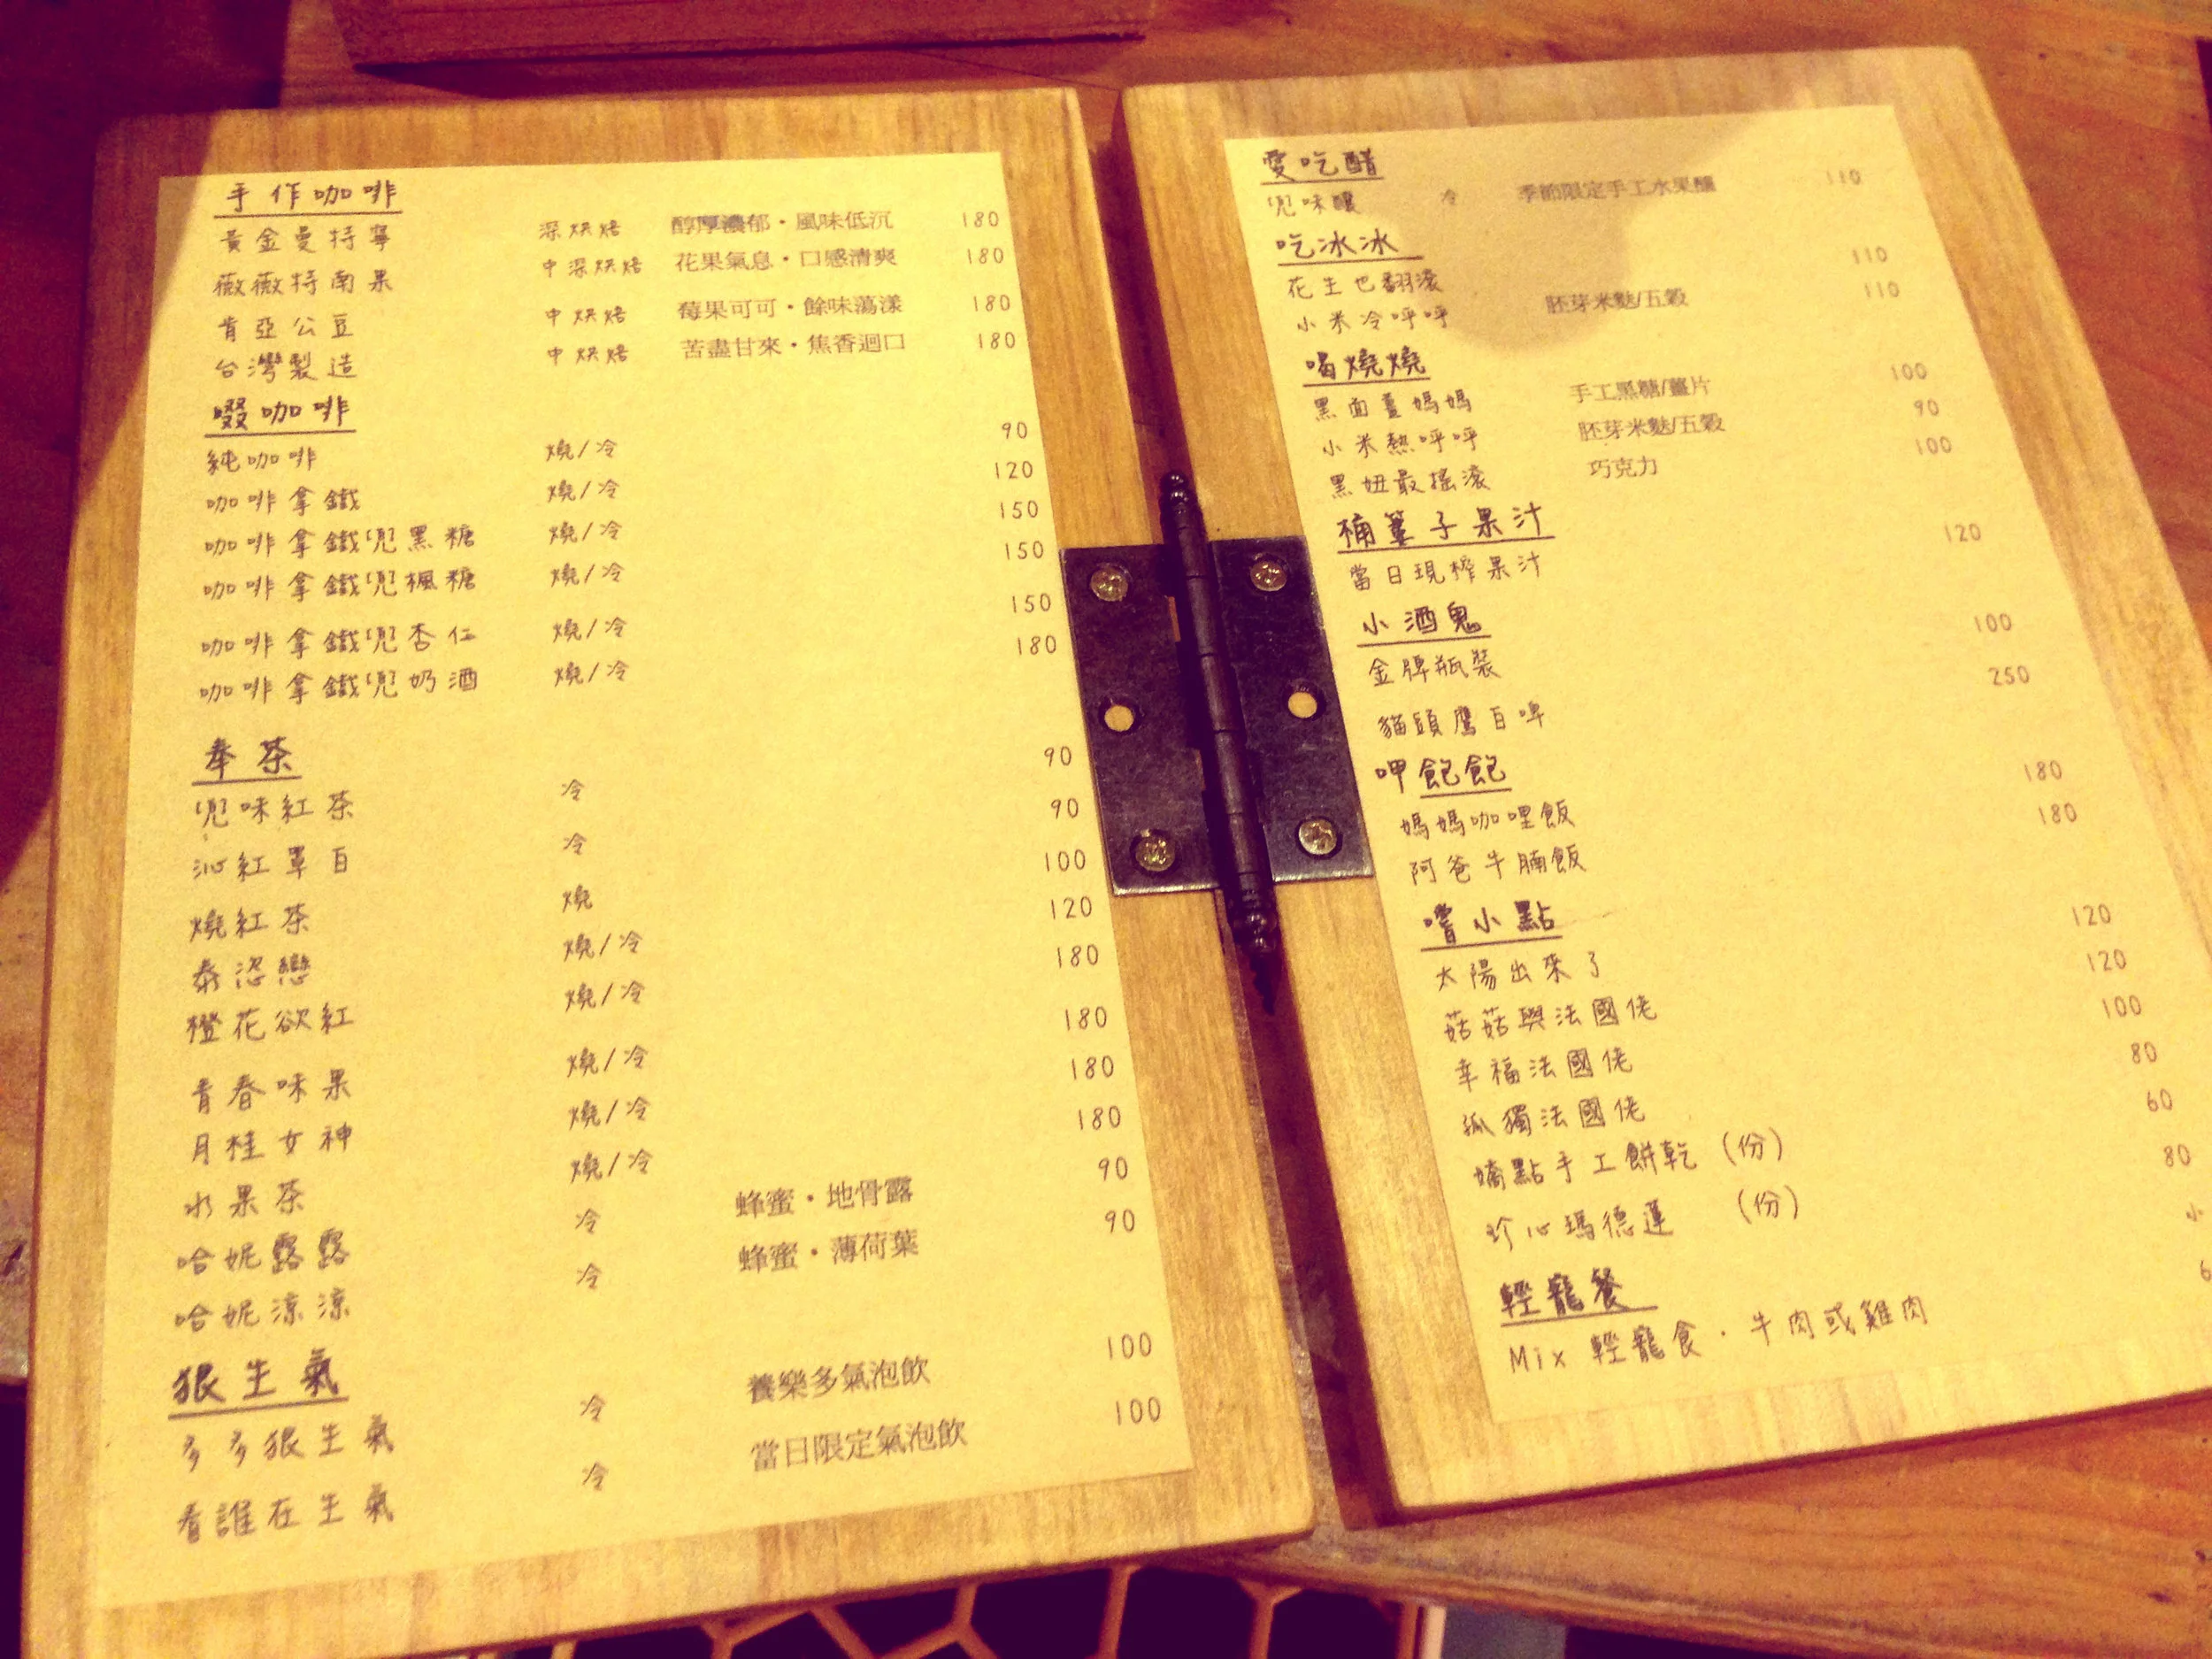 手作咖啡
黃金曼特寧 深烘焙 醇厚濃郁・風味低沉 180
薇薇特南果 中深烘焙 花果氣息・口感清爽 180
肯亞公豆 中烘焙 莓果可可・餘味蕩漾 180
台灣製造 中烘焙 苦盡甘來・焦香迴口 180
啜咖啡
純咖啡 燒/冷 90
咖啡拿鐵 燒/冷 120
咖啡拿鐵兜黑糖 燒/冷 150
咖啡拿鐵兜楓糖 燒/冷 150
咖啡拿鐵兜杏仁 燒/冷 150
咖啡拿鐵兜奶酒 燒/冷 180
奉茶
兜味紅茶 冷 90
沁紅罩白 冷 90
燒紅茶 燒 100
泰恣戀 燒/冷 120
橙花欲紅 燒/冷 180
青春味果 燒/冷 180
月桂女神 燒/冷 180
水果茶 燒/冷 180
哈妮露露 冷 蜂蜜・地骨露 90
哈妮涼涼 冷 蜂蜜・薄荷葉 90
狠生氣
多多狠生氣 冷 養樂多氣泡飲 100
看誰在生氣 冷 當日限定氣泡飲 100
愛吃醋
兜味釀 冷 季節限定手工水果釀 110
吃冰冰
花生也翻滾 110
小米冷呼呼 胚芽米麩/五穀 110
喝燒燒
黑面薑媽媽 手工黑糖/薑片 100
小米熱呼呼 胚芽米麩/五穀 90
黑妞最搖滾 巧克力 100
子果汁
當日現榨果汁 120
小酒鬼
金牌瓶裝 100
貓頭鷹白啤 250
呷飽飽
媽媽咖哩飯 180
阿爸牛腩飯 180
嚐小點
太陽出來了 120
菇菇與法國佬 120
幸福法國佬 100
孤獨法國佬 80
嬌點手工餅乾 (份) 60
珍心瑪德蓮 (份) 80
輕寵餐
Mix 輕寵食・牛肉或雞肉